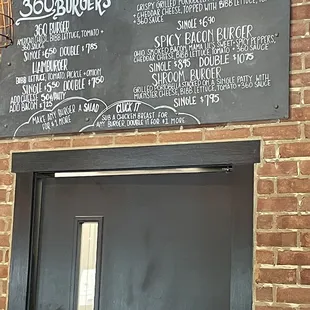 360 BURGERS
360 BURGER
AMERICAN CHEESE, BIBB LETTUCE, TOMATO
360 SAUCE
SINGLE $6.50 DOUBLE $7.85
HAMBURGER
BIBB LETTUCE, TOMATO, PICKLE + ONION
SINGLE $5.50 DOUBLE $7
ADD CHEESE
ADD BACON
MAKE ANY BURGER A SALAD
FOR $1 MORE
CLUCK IT
SUB A CHICKEN BREAST FOR
ANY BURGER, DOUBLE IT FOR $2 MORE
CRISPY GRILLED
CHEDDAR CHEESE, TOPPED WITH BIBB LETTUCE
360 SAUCE
SINGLE $6.90
SPICY BACON BURGER
OHIO SMOKED BACON, MAMA LIL'S SWEET + SPICY PEPPERS,
CHEDDAR CHEESE, BIBB LETTUCE, TOMATO + 360 SAUCE
SINGLE $8.95 DOUBLE $10.75
SHROOM BURGER
GRILLED PORTOBELLA STACKED ON A SINGLE PATTY WITH
MUENSTER CHEESE, BIBB LETTUCE, TOMATO + 360 SAUCE
SINGLE $7.95